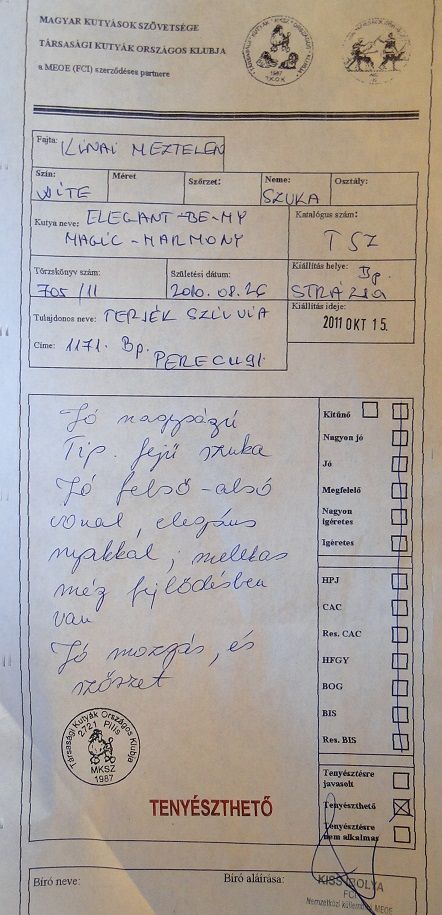 MAGYAR KUTYÁSOK SZÖVETSÉGE
TÁRSASÁGI KUTYÁK ORSZÁGOS KLUBJA
a MEOE (FCI) szerződéses partnere
Fajta: KÍNAI MEZTELEN
Szín: WITE
Méret
Szőrzet:
Neme: SZUKA
Osztály:
Kutya neve: ELEGANT-BE-MY
MAGIC-HARMONY
Katalógus szám:
TSZ
Törzskönyv szám:
705/11
Születési dátum:
2010.08.26
Kiállítás helye: Bp.
STRÁZSA
Tulajdonos neve: TERJÉK SZILVIA
Címe: 1171. Bp.
Kiállítás ideje:
2011 OKT 15.
Jó nagyságú
Tip. fejű szuka
Jó felső-alsó
vonal, elegáns
nyakkal, mellkas
még fejlődésben
van
Jó mozgás, és
szőrzet
Kitűnő
Nagyon jó
Jó
Megfelelő
Nagyon
ígéretes
Ígéretes
HPJ
CAC
Res. CAC
HFGY
BOG
BIS
Res. BIS
Tenyésztésre
javasolt
Tenyészthető
Tenyésztésre
nem alkalmas
Társasági Kutyák Országos Klubja
2721 Pilis
MKSZ
1987
TENYÉSZTHETŐ
Bíró neve:
Bíró aláírása:
KISS IBOLYA
FCI